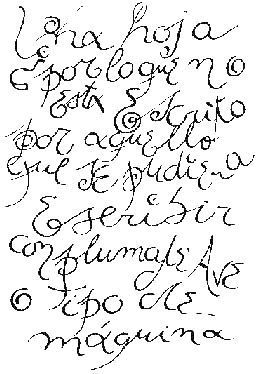 Una hoja
es por lo que no
esta escrito
por aquello
que se pudiera
Escribir
con pluma de Ave
o tipo de
máquina